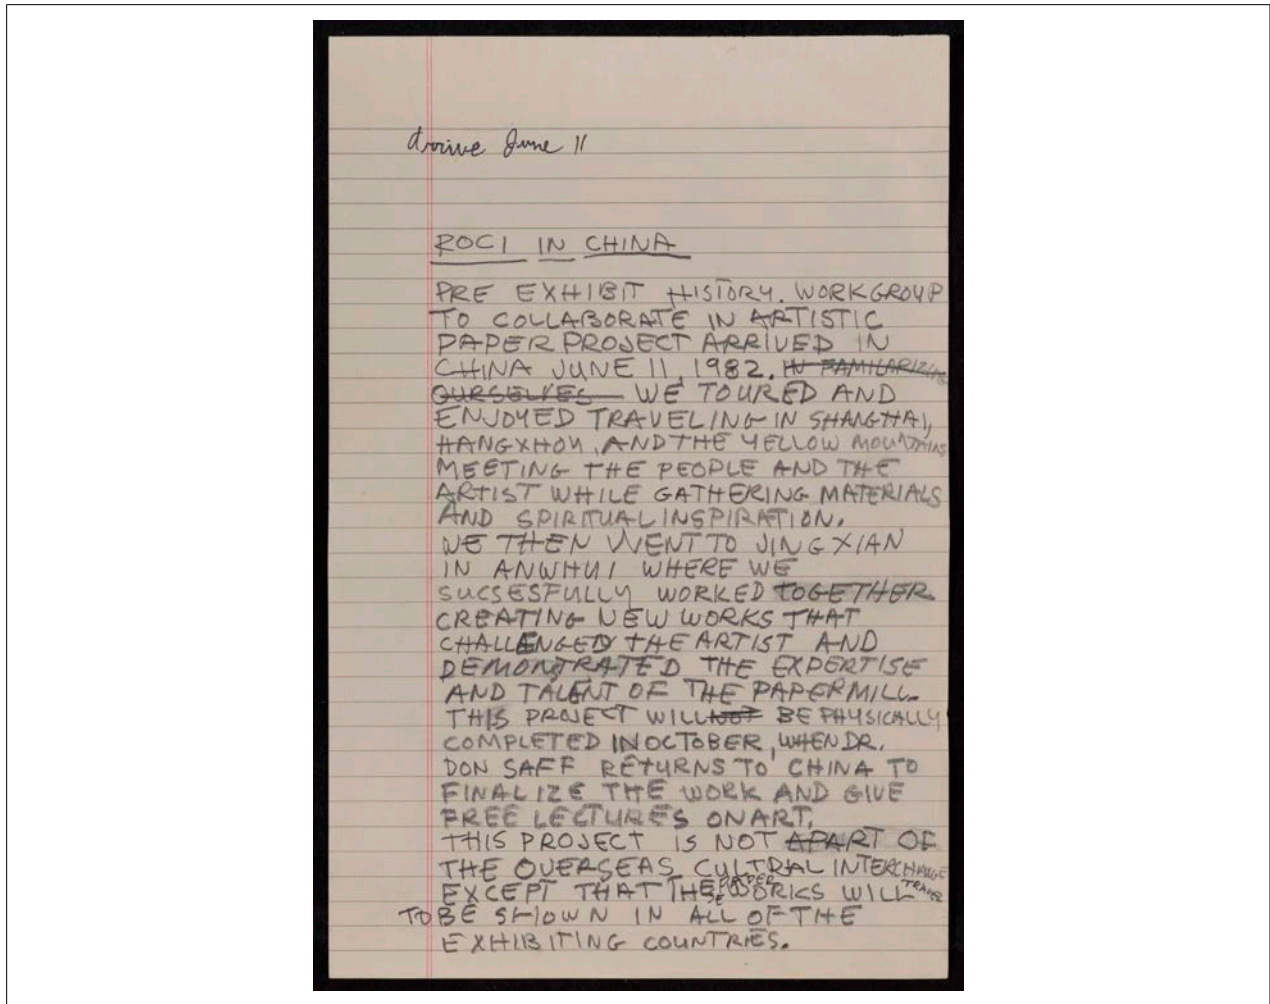 Arrive June 11
ROCI IN CHINA
PRE EXHIBIT HISTORY. WORKGROUP
TO COLLABORATE IN ARTISTIC
PAPER PROJECT ARRIVED IN
CHINA JUNE 11, 1982. IN FAMILARIZING
OURSELVES WE TOURED AND
ENJOYED TRAVELING IN SHANGHAI,
HANGXHOU, AND THE YELLOW MOUNTAINS
MEETING THE PEOPLE AND THE
ARTIST WHILE GATHERING MATERIALS
AND SPIRITUAL INSPIRATION.
WE THEN WENT TO JINGXIAN
IN ANWHUI WHERE WE
SUCSESFULLY WORKED TOGETHER
CREATING NEW WORKS THAT
CHALLENGED THE ARTIST AND
DEMONTRATED THE EXPERTISE
AND TALENT OF THE PAPERMILL.
THIS PROJECT WILL NOT BE PHYSICALLY
COMPLETED IN OCTOBER, WHEN DR.
DON SAFF RETURNS TO CHINA TO
FINALIZE THE WORK AND GIVE
FREE LECTURES ON ART.
THIS PROJECT IS NOT APART OF
THE OVERSEAS CULTRAL INTERCHANGE
EXCEPT THAT THESE PAPER WORKS WILL TRAVEL
TO BE SHOWN IN ALL OF THE
EXHIBITING COUNTRIES.